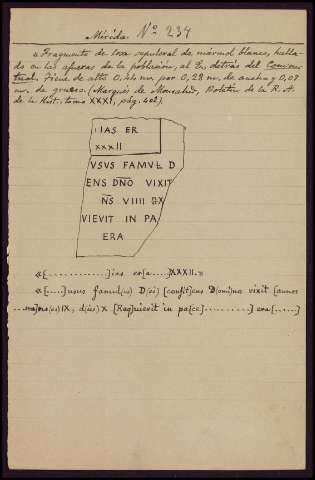 Mérida. Nº 234
« Fragmento de losa sepulcral de mármol blanco, halla-
do en las afueras de la población, al E. detrás del Conven-
tual. Tiene de alto 0, m por 0,28 m. de ancho y 0,07
m. de grueso. (Marqués de Monsalud, Boletín de la R. A.
de la Hist. tomo XXXI, pág. 402).
IAS ER
XXXII
VSVS FAMVL D
ENS DNO VIXIT
NS VIIII X
VIEVIT IN PA
ERA
«[............]ias er[a.....]XXXII.»
«[.....]usus famul(us) D(ei) [confit]ens D(omi)no vixit [annos
...... IX, d(ies) X [Req]uievit in pa[ce]..........] era[.....]